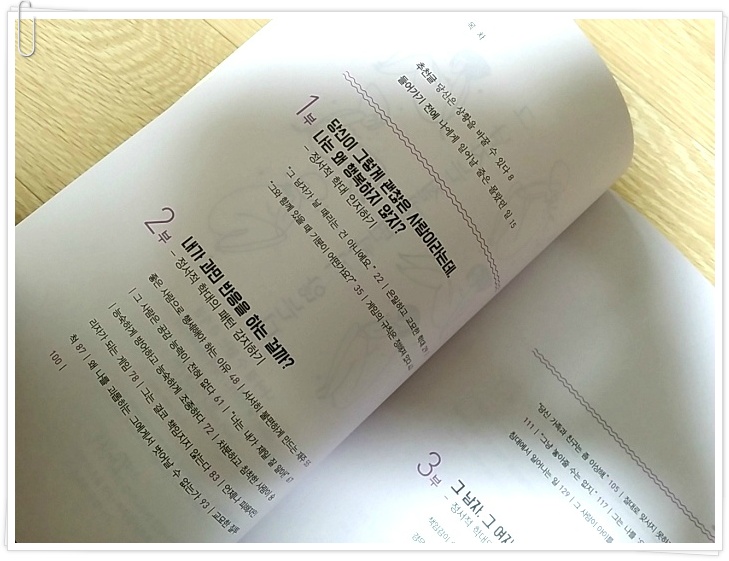 목차
추천글 당신은 상황을 바꿀 수 있다 8
들어가기 전에 나에게 일어날 줄은 몰랐던 일 15
1부
당신이 그렇게 괜찮은 사람이라는데,
나는 왜 행복하지 않지?
- 정서적 학대 인지하기
"그 남자가 날 때리는 건 아니에요." 22 | 은밀하고 교묘한 학대
"그와 함께 있을 때 기분이 어떤가요?" 35 | 게임의 규칙은 정해져 있다
2부
내가 과민 반응을 하는 걸까?
- 정서적 학대의 패턴 감지하기
좋은 사람으로 행세해야 하는 이유 48 | 서서히 불편하게 만드는
| 그 사람은 공감 능력이 전혀 없다 61 | "너는 내가 제일 잘 알아." 67
| 능숙하게 방어하고 능숙하게 조종하다 72 | 차분하고 침착한 사람이
리자가 되는 게임 78 | 그는 결코 책임지지 않는다 83 | 언제나 피해자인
척 87 | 왜 나를 괴롭히는 그에게서 벗어날 수 없는가 93 | 교묘한
100 |
"당신 가족과 친구는 좀 이상해." 105 | 절대로 맞서지 못하
111 | "그냥 놓아줄 수는 없지." 117 | 그는 나를
침대에서 일어나는 일 129 | 그 사람이 아이를
3부
그 남자, 그 여자
- 정서적 학대